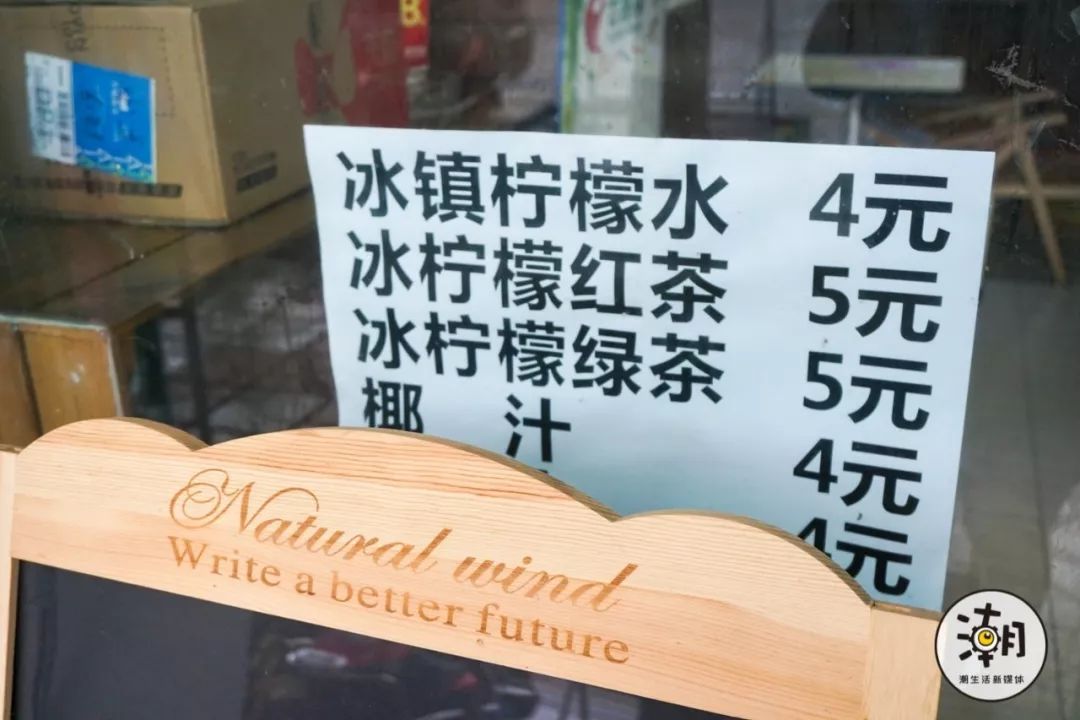 冰镇柠檬水 4元
冰柠檬红茶 5元
冰柠檬绿茶 5元
椰 汁 4元
4元
Natural wind
Write a better future
潮
潮生活新媒体